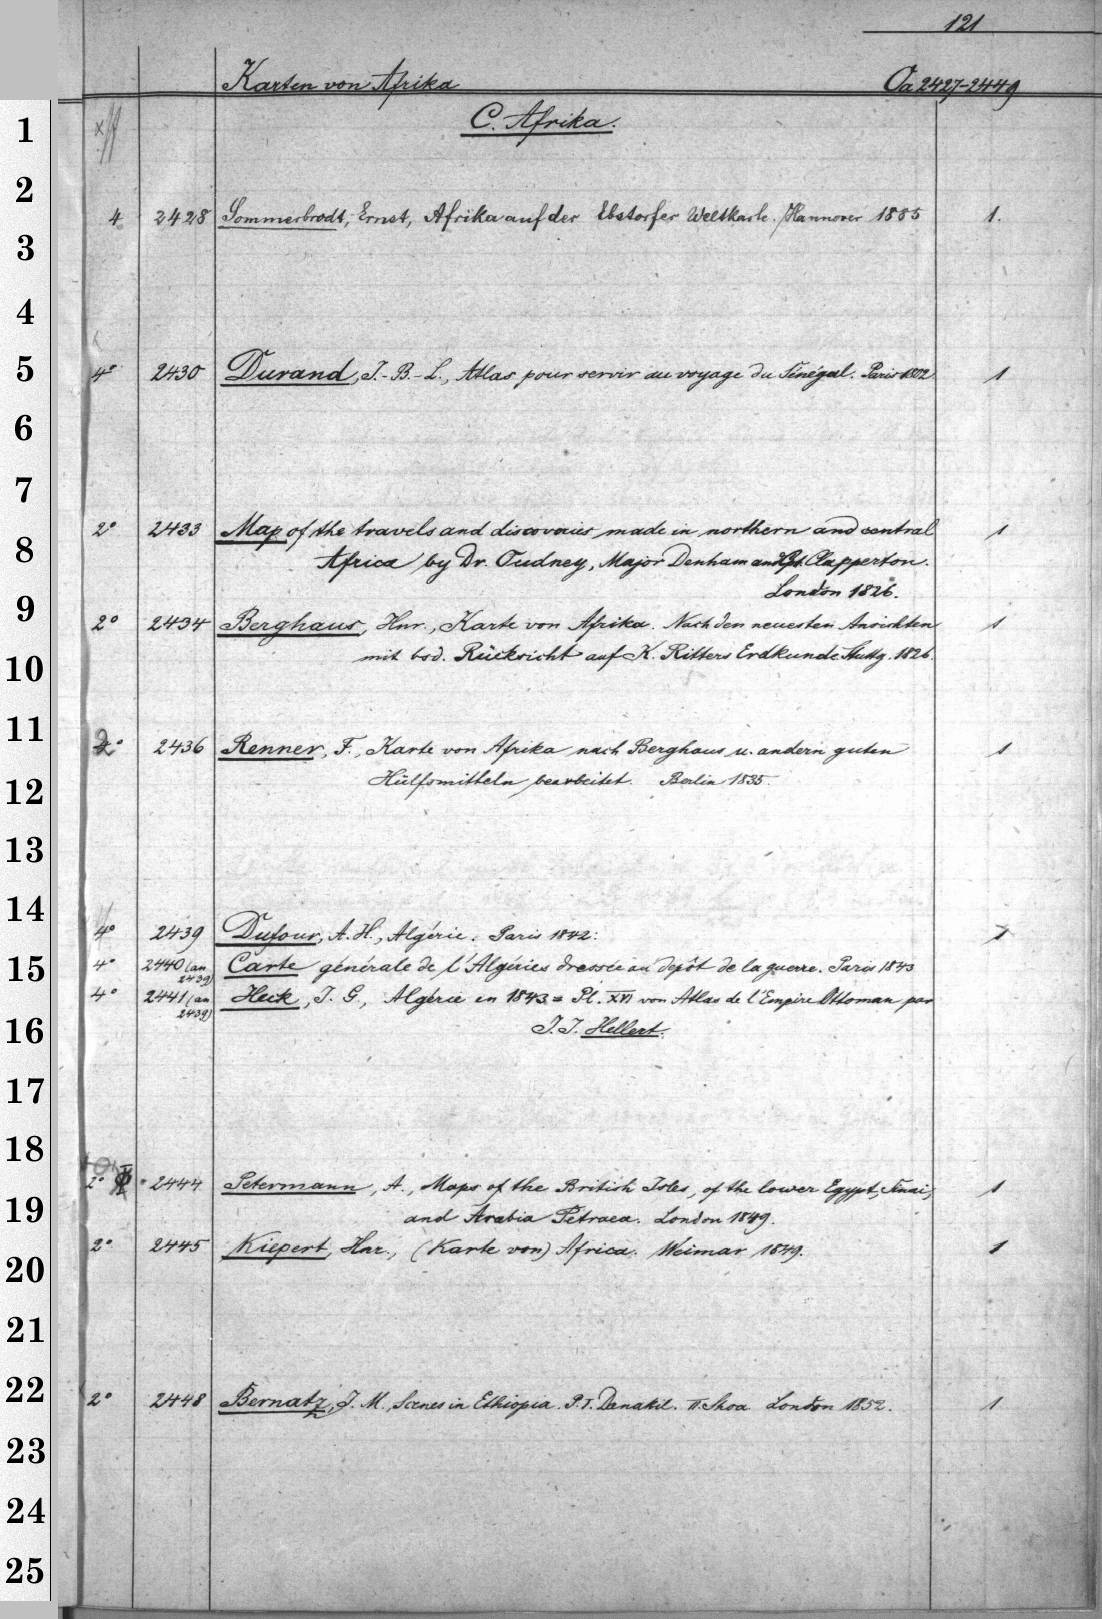 121
Karten von Afrika Oa 2427-2449
1
C. Afrika.
2
4. 2428 Sommerbrodt, Ernst, Afrika auf der Ebstorfer Weltkarte. Hannover 1885 1.
3
4
5 4° 2430 Durand, J.-B.-L., Atlas pour servir au voyage du Sénégal. Paris 1802 1
6
7
2° 2433 Map of the travels and discoveries made in northern and central 1
8 Africa by Dr. Oudney, Major Denham and Cpt. Clapperton.
London 1826.
9 2° 2434 Berghaus, Hnr., Karte von Afrika. Nach den neuesten Ansichten 1
10 mit bes. Rücksicht auf K. Ritters Erdkunde. Stuttg. 1826.
11 2° 2436 Renner, F., Karte von Afrika nach Berghaus u. andern guten 1
12 Hülfsmitteln bearbeitet. Berlin 1835.
13
14
4° 2439 Dufour, A. H., Algérie. Paris 1842. 1
15 4° 2440 (an 2439) Carte générale de l'Algéries dressée au depôt de la guerre. Paris 1843
4° 2441 (an 2439) Heck, J. G., Algérie en 1843 = Pl. XVI von Atlas de l'Empire Ottoman par
16 J. J. Hellert.
17
18
2° 2444 Petermann, A., Maps of the British Isles, of the lower Egypt, Sinai, 1
19 and Arabia Petraea. London 1849.
2° 2445 Kiepert, Hnr., (Karte von) Africa. Weimar 1849. 1
20
21
22 2° 2448 Bernatz, J. M., Scenes in Ethiopia. P. I. Danakil. II. Shoa London 1852. 1
23
24
25